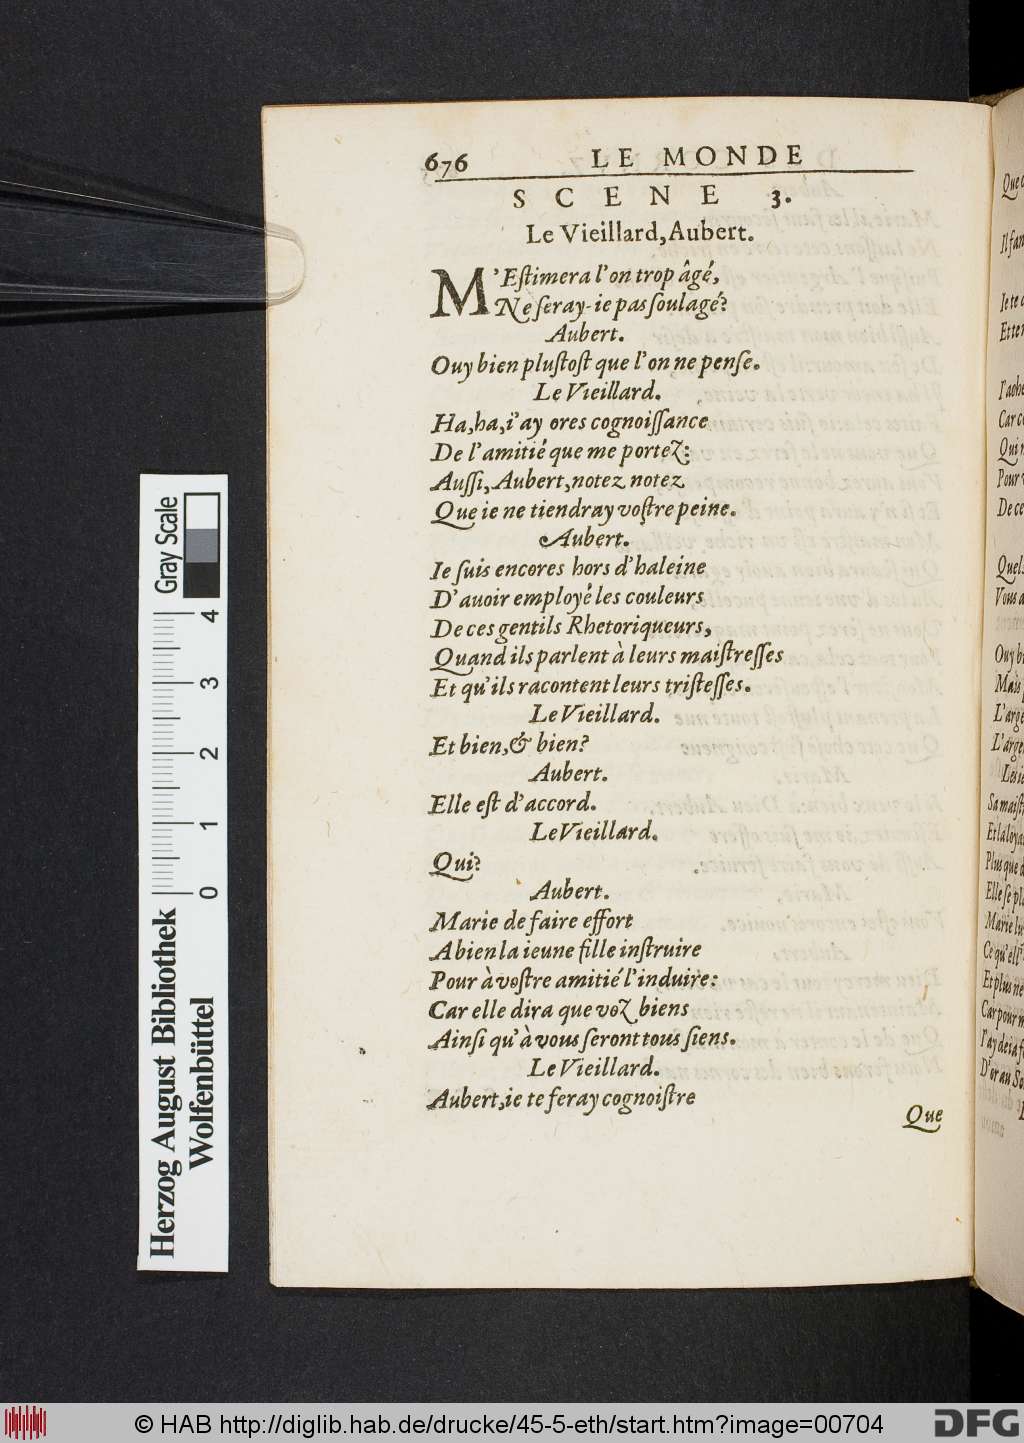 676 LE MONDE
SCENE 3.
Le Vieillard, Aubert.
M'Eſtimera l'on trop âgé,
Ne ſeray-ie pas ſoulagé?
Aubert.
Ouy bien pluſtoſt que l'on ne penſe.
Le Vieillard.
Ha, ha, i'ay ores cognoiſſance
De l'amitié que me portez:
Auſſi, Aubert, notez notez
Que ie ne tiendray voſtre peine.
Aubert.
Ie ſuis encores hors d'haleine
D'auoir employé les couleurs
De ces gentils Rhetoriqueurs,
Quand ils parlent à leurs maiſtreſſes
Et qu'ils racontent leurs triſteſſes.
Le Vieillard.
Et bien, & bien?
Aubert.
Elle eſt d'accord.
Le Vieillard.
Qui?
Aubert.
Marie de faire effort
A bien la ieune fille inſtruire
Pour à voſtre amitié l'induire:
Car elle dira que voz biens
Ainſi qu'à vous ſeront tous ſiens.
Le Vieillard.
Aubert, ie te feray cognoiſtre
Que
Gray Scale
4
3
2
1
0
Herzog August Bibliothek
Wolfenbüttel
© HAB http://diglib.hab.de/drucke/45-5-eth/start.htm?image=00704
DFG